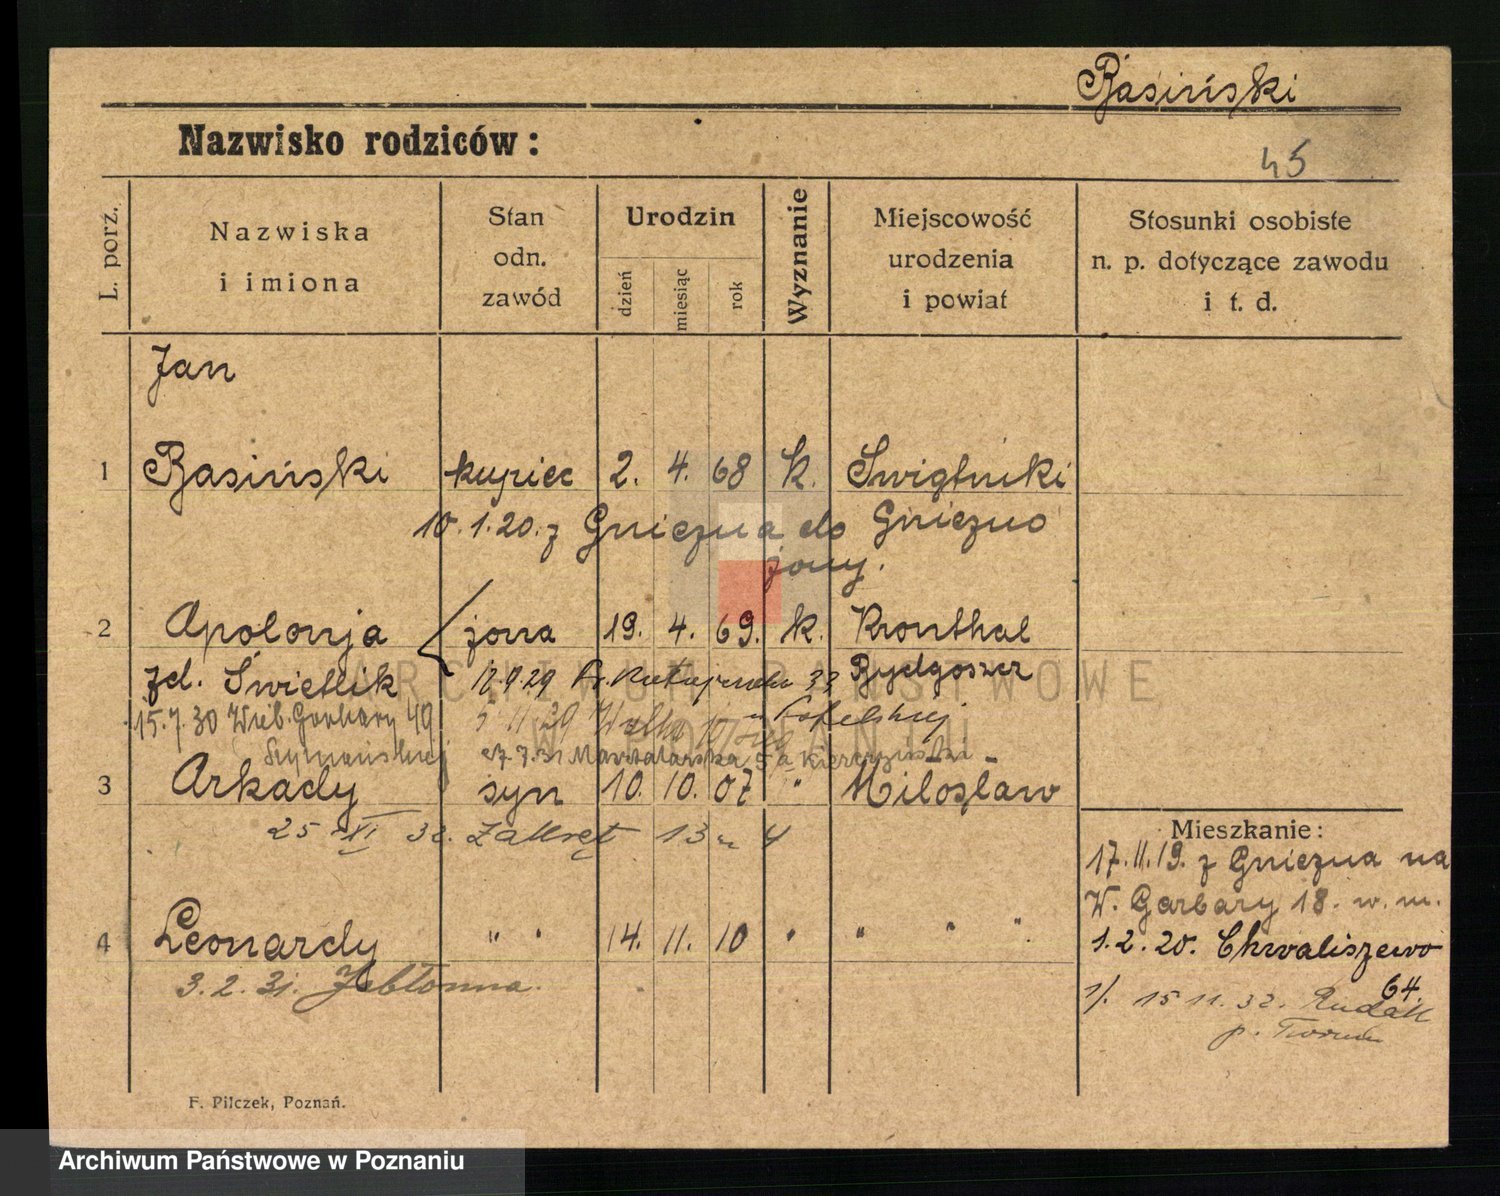 Basiński
Nazwisko rodziców:
45
L. porz.
Nazwiska
i imiona
Stan
odn.
zawód
Urodzin
dzień
miesiąc
rok
Wyznanie
Miejscowość
urodzenia
i powiat
Stosunki osobiste
n. p. dotyczące zawodu
i t. d.
Jan
1 Basiński kupiec 2. 4. 68 k. Swiątniki
10.1.20. z Gniezna do Gniezno
żony.
2 Apolonja żona 19. 4. 69. k. Kronthal
zd. Świetlik 33 Bydgoszcz
15.7.30 Garbary 49
Szymańskiej 5a
3 Arkady syn 10. 10. 07 " Miłosław
25 XI 32. Zakręt 13 4
4 Leonardy " " 14. 11. 10 " " " "
3.2.31. Jabłonna.
Mieszkanie:
17.11.19. z Gniezna na
W. Garbary 18. w. m.
1.2.20. Chwaliszewo
64.
1/. 15 11. 32. Rudak
p. Toruń
F. Pilczek, Poznań.
ARCHIWUM PAŃSTWOWE
W POZNANIU
Archiwum Państwowe w Poznaniu